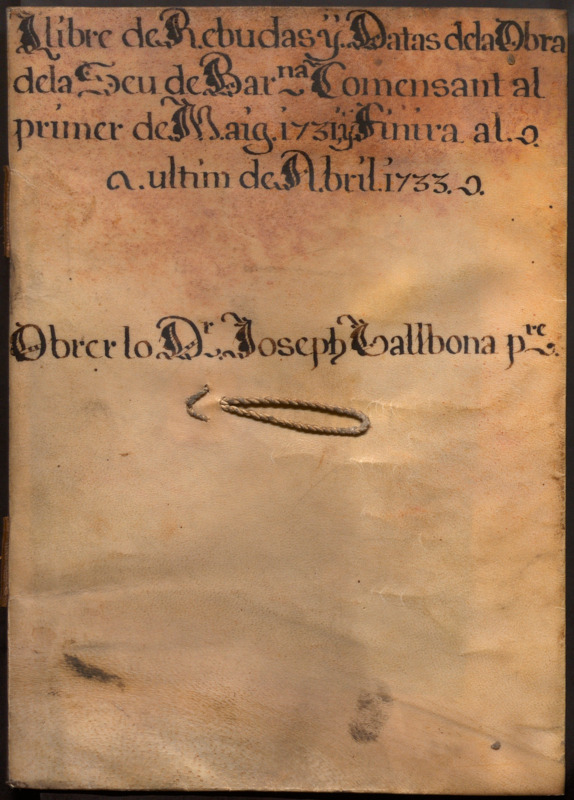 Llibre de Rebudas ÿ Datas dela Obra
dela Seu de Bar.na Comensant al
primer de Maig. 1731 ÿ Finira al.
a. ultim de Abril. 1733.
Obrer lo Dr. Joseph Vallbona pre.